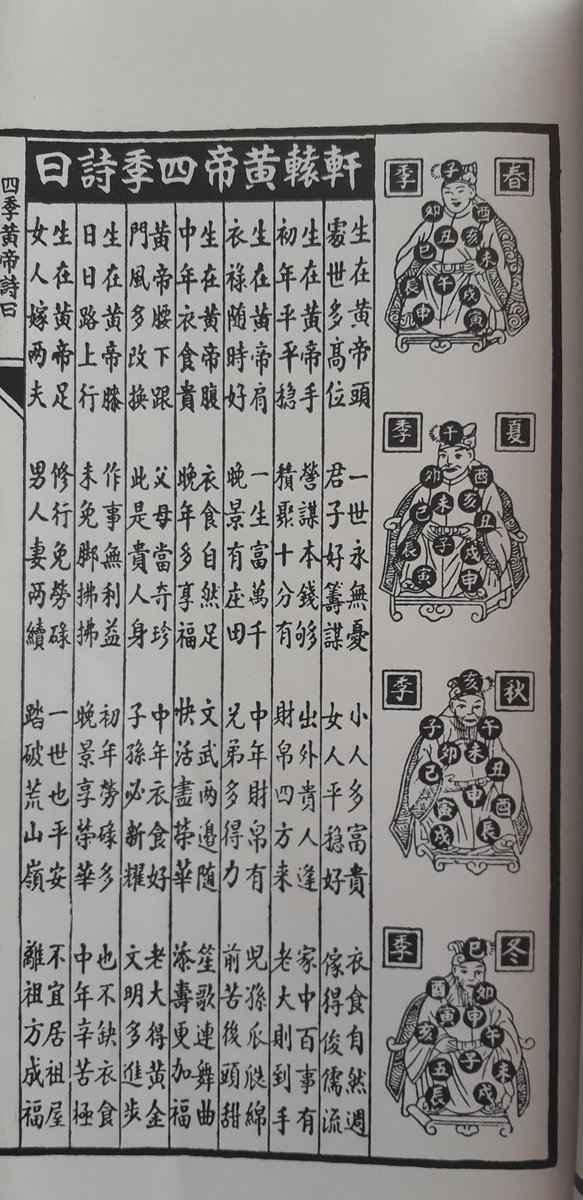 軒轅黃帝四季詩曰
春季
子
酉
卯
亥
丑
巳
未
午
戌
辰
寅
申
夏季
午
酉
卯
亥
未
巳
丑
戌
子
辰
申
寅
秋季
亥
午
子
未
卯
丑
巳
申
酉
寅
辰
戌
冬季
巳
卯
酉
申
寅
午
亥
子
未
丑
戌
辰
生在黃帝頭 一世永無憂 小人多富貴 衣食自然週
處世多高位 君子好籌謀 女人平穩好 傢得俊儒流
生在黃帝手 營謀本錢够 出外貴人逢 家中百事有
初年平平穩 積聚十分有 財帛四方來 老大則到手
生在黃帝肩 一生富萬千 中年財帛有 兒孫瓜瓞綿
衣祿隨時好 晚景有庄田 兄弟多得力 前苦後頭甜
生在黃帝腹 衣食自然足 文武两邉隨 笙歌連舞曲
中年衣食貴 晚年多享福 快活盡榮華 添壽更加福
黃帝腰下跟 父母當奇珍 中年衣食好 老大得黃金
門風多改換 此是貴人身 子孫必新耀 文明多進步
生在黃帝膝 作事無利益 初年勞碌多 也不缺衣食
日日路上行 未免脚拂拂 晚景享榮華 中年辛苦極
生在黃帝足 修行免勞碌 一世也平安 不宜居祖屋
女人嫁两夫 男人妻两續 踏破荒山嶺 離祖方成福
四季黃帝詩曰